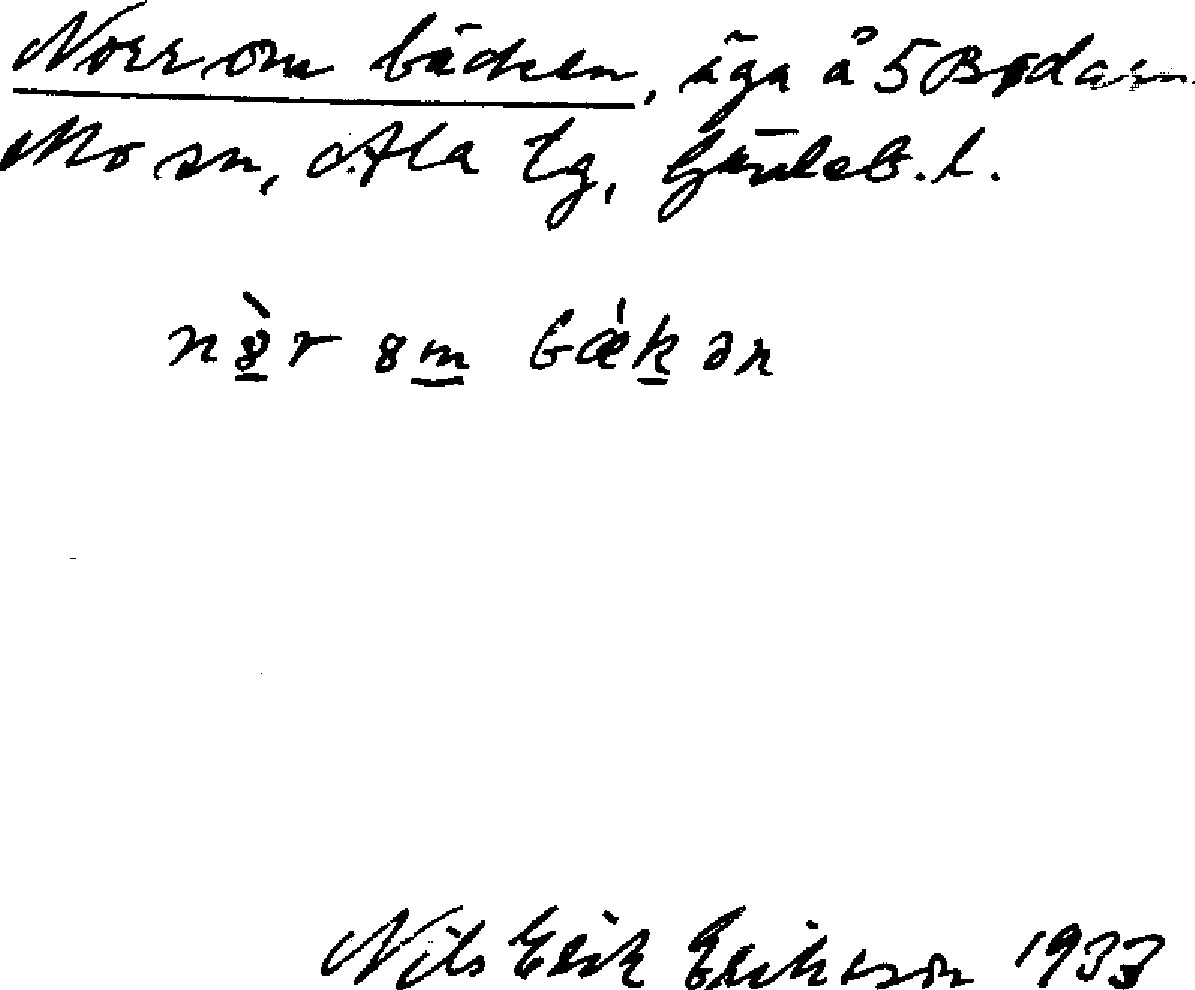 Norr om bäcken, äga å 5 Bodarn
Mo sn, Ala tg, Gävleb. l.
n8̀r 8m bǽkən
Nils Erik Erikson 1933